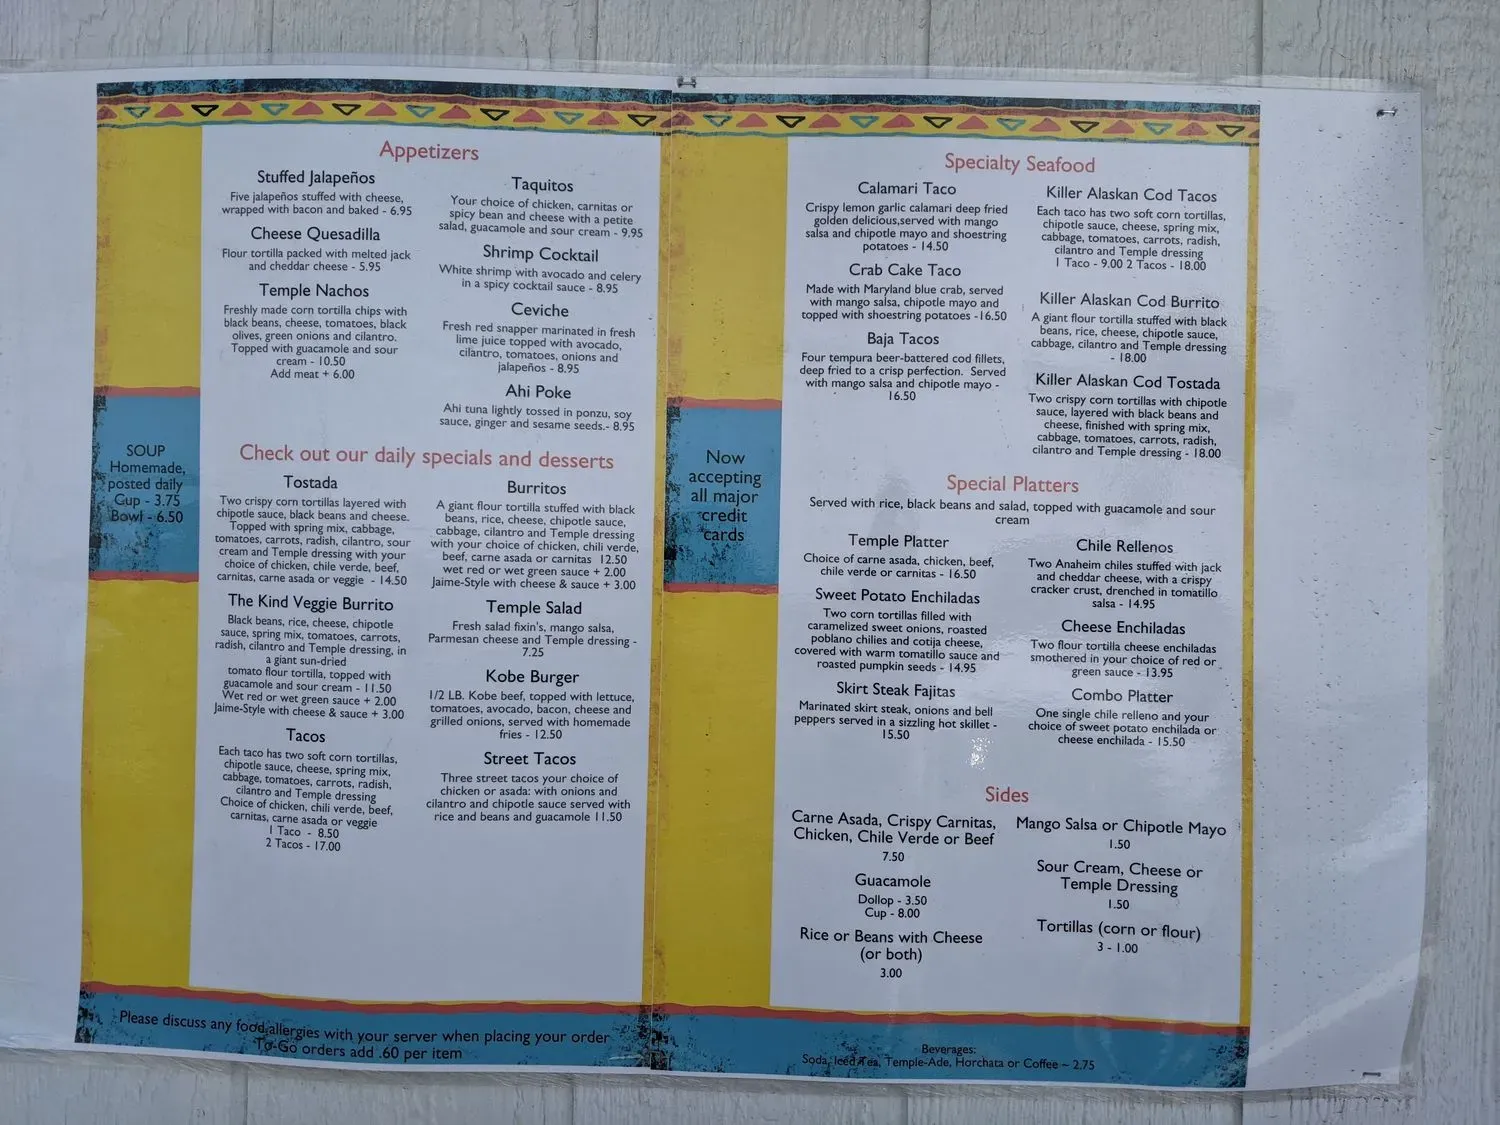 Appetizers
Stuffed Jalapeños
Five jalapeños stuffed with cheese,
wrapped with bacon and baked - 6.95
Cheese Quesadilla
Flour tortilla packed with melted jack
and cheddar cheese - 5.95
Temple Nachos
Freshly made corn tortilla chips with
black beans, cheese, tomatoes, black
olives, green onions and cilantro.
Topped with guacamole and sour
cream - 10.50
Add meat + 6.00
Taquitos
Your choice of chicken, carnitas or
spicy bean and cheese with a petite
salad, guacamole and sour cream - 9.95
Shrimp Cocktail
White shrimp with avocado and celery
in a spicy cocktail sauce - 8.95
Ceviche
Fresh red snapper marinated in fresh
lime juice topped with avocado,
cilantro, tomatoes, onions and
jalapeños - 8.95
Ahi Poke
Ahi tuna lightly tossed in ponzu, soy
sauce, ginger and sesame seeds.- 8.95
SOUP
Homemade,
posted daily
Cup - 3.75
Bowl - 6.50
Check out our daily specials and desserts
Tostada
Two crispy corn tortillas layered with
chipotle sauce, black beans and cheese.
Topped with spring mix, cabbage,
tomatoes, carrots, radish, cilantro, sour
cream and Temple dressing with your
choice of chicken, chile verde, beef,
carnitas, carne asada or veggie - 14.50
The Kind Veggie Burrito
Black beans, rice, cheese, chipotle
sauce, spring mix, tomatoes, carrots,
radish, cilantro and Temple dressing, in
a giant sun-dried
tomato flour tortilla, topped with
guacamole and sour cream - 11.50
Wet red or wet green sauce + 2.00
Jaime-Style with cheese & sauce + 3.00
Tacos
Each taco has two soft corn tortillas,
chipotle sauce, cheese, spring mix,
cabbage, tomatoes, carrots, radish,
cilantro and Temple dressing
Choice of chicken, chili verde, beef,
carnitas, carne asada or veggie
1 Taco - 8.50
2 Tacos - 17.00
Burritos
A giant flour tortilla stuffed with black
beans, rice, cheese, chipotle sauce,
cabbage, cilantro and Temple dressing
with your choice of chicken, chili verde,
beef, carne asada or carnitas 12.50
wet red or wet green sauce + 2.00
Jaime-Style with cheese & sauce + 3.00
Temple Salad
Fresh salad fixin's, mango salsa,
Parmesan cheese and Temple dressing -
7.25
Kobe Burger
1/2 LB. Kobe beef, topped with lettuce,
tomatoes, avocado, bacon, cheese and
grilled onions, served with homemade
fries - 12.50
Street Tacos
Three street tacos your choice of
chicken or asada: with onions and
cilantro and chipotle sauce served with
rice and beans and guacamole 11.50
Please discuss any food allergies with your server when placing your order
To-Go orders add .60 per item
Specialty Seafood
Calamari Taco
Crispy lemon garlic calamari deep fried
golden delicious,served with mango
salsa and chipotle mayo and shoestring
potatoes - 14.50
Crab Cake Taco
Made with Maryland blue crab, served
with mango salsa, chipotle mayo and
topped with shoestring potatoes -16.50
Baja Tacos
Four tempura beer-battered cod fillets,
deep fried to a crisp perfection. Served
with mango salsa and chipotle mayo -
16.50
Killer Alaskan Cod Tacos
Each taco has two soft corn tortillas,
chipotle sauce, cheese, spring mix,
cabbage, tomatoes, carrots, radish,
cilantro and Temple dressing
1 Taco - 9.00 2 Tacos - 18.00
Killer Alaskan Cod Burrito
A giant flour tortilla stuffed with black
beans, rice, cheese, chipotle sauce,
cabbage, cilantro and Temple dressing
- 18.00
Killer Alaskan Cod Tostada
Two crispy corn tortillas with chipotle
sauce, layered with black beans and
cheese, finished with spring mix,
cabbage, tomatoes, carrots, radish,
cilantro and Temple dressing - 18.00
Now
accepting
all major
credit
cards
Special Platters
Served with rice, black beans and salad, topped with guacamole and sour
cream
Temple Platter
Choice of carne asada, chicken, beef,
chile verde or carnitas - 16.50
Sweet Potato Enchiladas
Two corn tortillas filled with
caramelized sweet onions, roasted
poblano chilies and cotija cheese,
covered with warm tomatillo sauce and
roasted pumpkin seeds - 14.95
Skirt Steak Fajitas
Marinated skirt steak, onions and bell
peppers served in a sizzling hot skillet -
15.50
Chile Rellenos
Two Anaheim chiles stuffed with jack
and cheddar cheese, with a crispy
cracker crust, drenched in tomatillo
salsa - 14.95
Cheese Enchiladas
Two flour tortilla cheese enchiladas
smothered in your choice of red or
green sauce - 13.95
Combo Platter
One single chile relleno and your
choice of sweet potato enchilada or
cheese enchilada - 15.50
Sides
Carne Asada, Crispy Carnitas,
Chicken, Chile Verde or Beef
7.50
Guacamole
Dollop - 3.50
Cup - 8.00
Rice or Beans with Cheese
(or both)
3.00
Mango Salsa or Chipotle Mayo
1.50
Sour Cream, Cheese or
Temple Dressing
1.50
Tortillas (corn or flour)
3 - 1.00
Beverages:
Soda, Iced Tea, Temple-Ade, Horchata or Coffee ~ 2.75